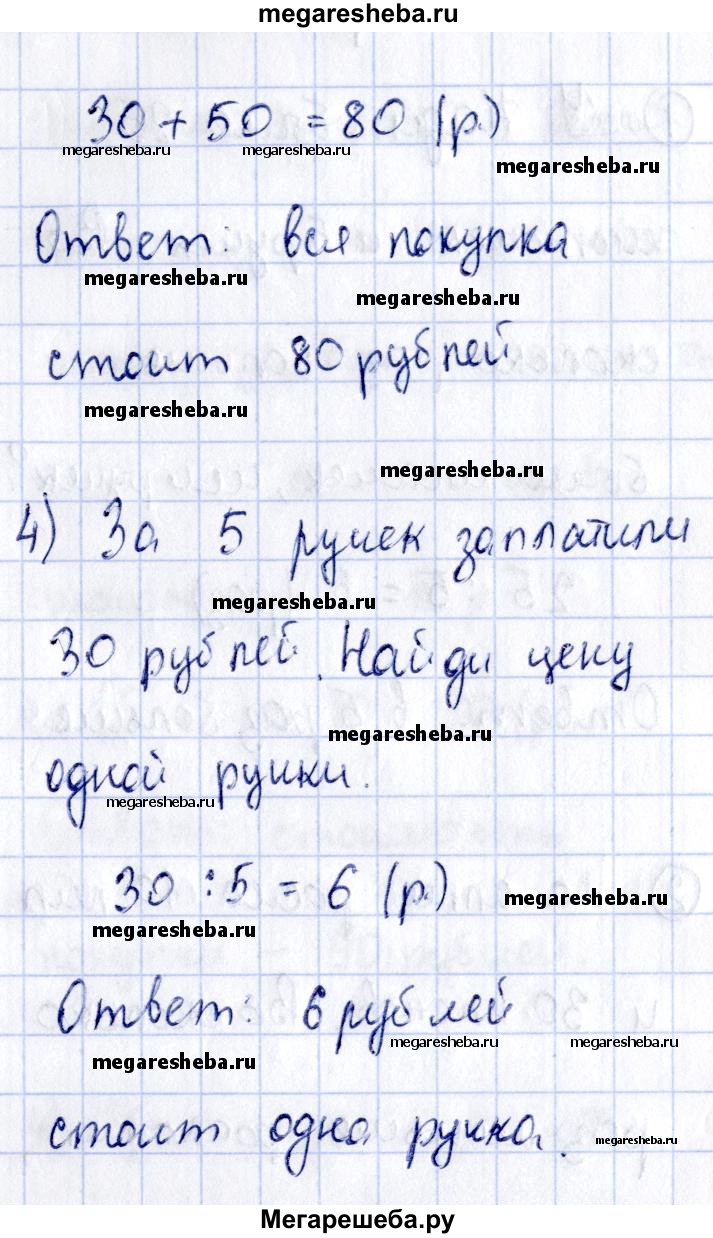 megaresheba.ru
30 + 50 = 80 (р.)
megaresheba.ru megaresheba.ru megaresheba.ru
Ответ: вся покупка
megaresheba.ru megaresheba.ru
стоит 80 рублей
megaresheba.ru
megaresheba.ru
4) За 5 ручек заплатили
megaresheba.ru
30 рублей. Найди цену
megaresheba.ru
одной ручки.
megaresheba.ru
30 : 5 = 6 (р.) megaresheba.ru
megaresheba.ru
Ответ: 6 рублей
megaresheba.ru megaresheba.ru
megaresheba.ru
стоит одна ручка. megaresheba.ru
Мегарешеба.ру